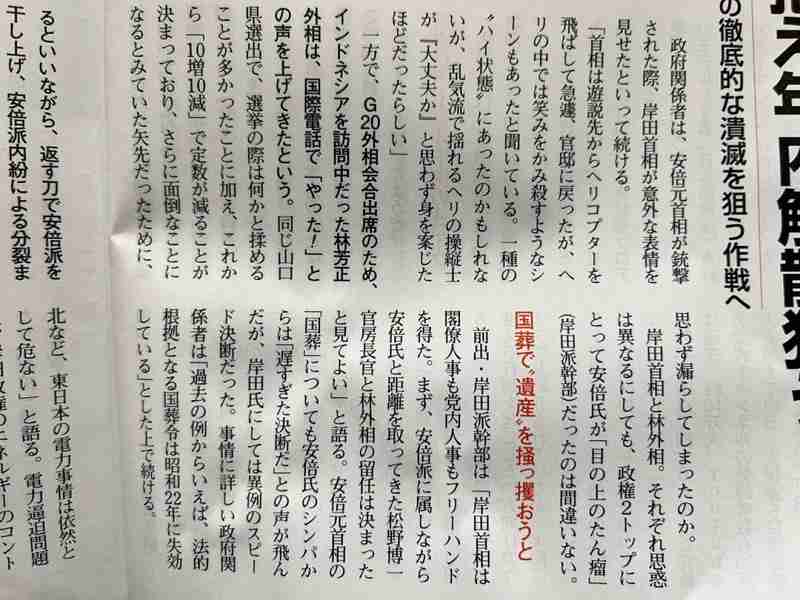 え年内解散狙
の徹底的な潰滅を狙う作戦へ
政府関係者は、安倍元首相が銃撃
された際、岸田首相が意外な表情を
見せたといって続ける。
「首相は遊説先からヘリコプターを
飛ばして急遽、官邸に戻ったが、ヘ
リの中では笑みをかみ殺すようなシ
ーンもあったと聞いている。一種の
〝ハイ状態〟にあったのかもしれな
いが、乱気流で揺れるヘリの操縦士
が『大丈夫か』と思わず身を案じた
ほどだったらしい」
一方で、G20外相会合出席のため、
インドネシアを訪問中だった林芳正
外相は、国際電話で「やった！」と
の声を上げてきたという。同じ山口
県選出で、選挙の際は何かと揉める
ことが多かったことに加え、これか
ら「10増10減」で定数が減ることが
決まっており、さらに面倒なことに
なるとみていた矢先だったために、
思わず漏らしてしまったのか。
岸田首相と林外相。それぞれ思惑
は異なるにしても、政権2トップに
とって安倍氏が「目の上のたん瘤」
（岸田派幹部）だったのは間違いない。
国葬で〝遺産〟を掻っ攫おうと
前出・岸田派幹部は「岸田首相は
閣僚人事も党内人事もフリーハンド
を得た。まず、安倍派に属しながら
安倍氏と距離を取ってきた松野博一
官房長官と林外相の留任は決まった
と見てよい」と語る。安倍元首相の
「国葬」についても安倍氏のシンパか
らは「遅すぎた決断だ」との声が飛ん
だが、岸田氏にしては異例のスピー
ド決断だった。事情に詳しい政府関
係者は「過去の例からいえば、法的
根拠となる国葬令は昭和22年に失効
している」とした上で続ける。
るといいながら、返す刀で安倍派を
干し上げ、安倍派内紛による分裂ま
北など、東日本の電力事情は依然と
して危ない」と語る。電力逼迫問題
政権のエネルギーのコント